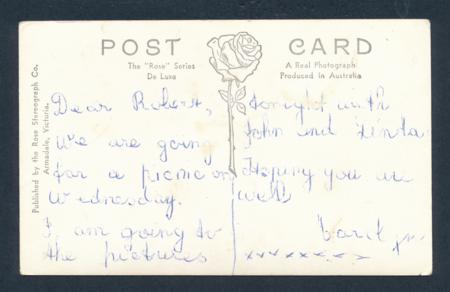 POST CARD
The "Rose" Series
De Luxe
A Real Photograph
Produced in Australia
Published by the Rose Stereograph Co.
Armadale, Victoria.
Dear Robert,
We are going
for a picnic on
Wednesday.
I am going to
the pictures
tonight with
John and
Hoping you are
well
xxxxxxxx